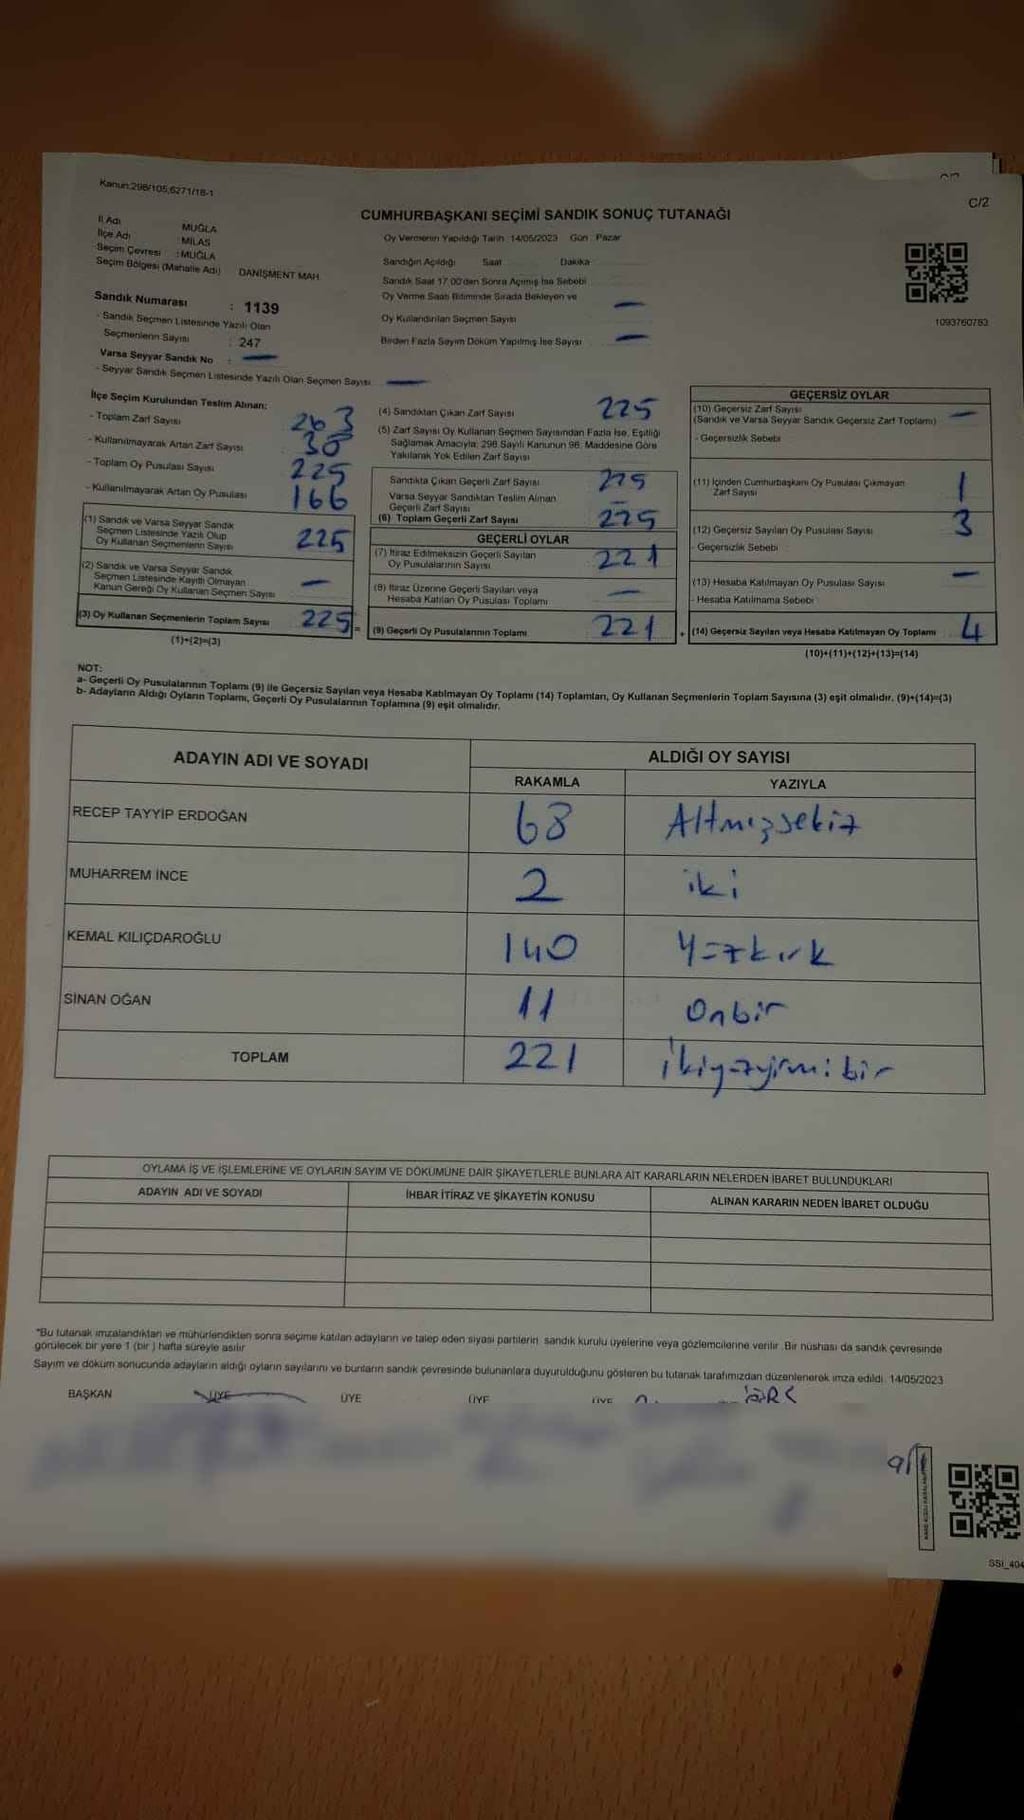 Kanun:298/105;6271/18-1
C/2
CUMHURBAŞKANI SEÇİMİ SANDIK SONUÇ TUTANAĞI
İl Adı : MUĞLA
İlçe Adı : MİLAS
Seçim Çevresi : MUĞLA
Seçim Bölgesi (Mahalle Adı) DANİŞMENT MAH.
Oy Vermenin Yapıldığı Tarih : 14/05/2023 Gün : Pazar
Sandığın Açıldığı Saat Dakika
Sandık Saat 17.00'den Sonra Açılmış İse Sebebi
Oy Verme Saati Bitiminde Sırada Bekleyen ve
Oy Kullandırılan Seçmen Sayısı —
Birden Fazla Sayım Döküm Yapılmış İse Sayısı —
1093760783
Sandık Numarası : 1139
- Sandık Seçmen Listesinde Yazılı Olan
Seçmenlerin Sayısı : 247
Varsa Seyyar Sandık No : —
- Seyyar Sandık Seçmen Listesinde Yazılı Olan Seçmen Sayısı —
İlçe Seçim Kurulundan Teslim Alınan:
- Toplam Zarf Sayısı 263
- Kullanılmayarak Artan Zarf Sayısı 38
- Toplam Oy Pusulası Sayısı 225
- Kullanılmayarak Artan Oy Pusulası 166
(1) Sandık ve Varsa Seyyar Sandık
Seçmen Listesinde Yazılı Olup
Oy Kullanan Seçmenlerin Sayısı 225
(2) Sandık ve Varsa Seyyar Sandık
Seçmen Listesinde Kayıtlı Olmayan
Kanun Gereği Oy Kullanan Seçmen Sayısı —
(3) Oy Kullanan Seçmenlerin Toplam Sayısı 225 =
(1)+(2)=(3)
(4) Sandıktan Çıkan Zarf Sayısı 225
(5) Zarf Sayısı Oy Kullanan Seçmen Sayısından Fazla İse, Eşitliği
Sağlamak Amacıyla; 298 Sayılı Kanunun 98. Maddesine Göre
Yakılarak Yok Edilen Zarf Sayısı
Sandıkta Çıkan Geçerli Zarf Sayısı 225
Varsa Seyyar Sandıktan Teslim Alınan
Geçerli Zarf Sayısı —
(6) Toplam Geçerli Zarf Sayısı 225
GEÇERLİ OYLAR
(7) İtiraz Edilmeksizin Geçerli Sayılan
Oy Pusulalarının Sayısı 221
(8) İtiraz Üzerine Geçerli Sayılan veya
Hesaba Katılan Oy Pusulası Toplamı —
(9) Geçerli Oy Pusulalarının Toplamı 221 +
GEÇERSİZ OYLAR
(10) Geçersiz Zarf Sayısı
(Sandık ve Varsa Seyyar Sandık Geçersiz Zarf Toplamı) —
- Geçersizlik Sebebi
(11) İçinden Cumhurbaşkanı Oy Pusulası Çıkmayan
Zarf Sayısı 1
(12) Geçersiz Sayılan Oy Pusulası Sayısı 3
- Geçersizlik Sebebi
(13) Hesaba Katılmayan Oy Pusulası Sayısı —
- Hesaba Katılmama Sebebi
(14) Geçersiz Sayılan veya Hesaba Katılmayan Oy Toplamı 4
(10)+(11)+(12)+(13)=(14)
NOT:
a- Geçerli Oy Pusulalarının Toplamı (9) ile Geçersiz Sayılan veya Hesaba Katılmayan Oy Toplamı (14) Toplamları, Oy Kullanan Seçmenlerin Toplam Sayısına (3) eşit olmalıdır. (9)+(14)=(3)
b- Adayların Aldığı Oyların Toplamı, Geçerli Oy Pusulalarının Toplamına (9) eşit olmalıdır.
ADAYIN ADI VE SOYADI ALDIĞI OY SAYISI
RAKAMLA YAZIYLA
RECEP TAYYİP ERDOĞAN 68 Altmışsekiz
MUHARREM İNCE 2 iki
KEMAL KILIÇDAROĞLU 140 Yüzkırk
SİNAN OĞAN 11 Onbir
TOPLAM 221 ikiyüzyirmibir
OYLAMA İŞ VE İŞLEMLERİNE VE OYLARIN SAYIM VE DÖKÜMÜNE DAİR ŞİKAYETLERLE BUNLARA AİT KARARLARIN NELERDEN İBARET BULUNDUKLARI
ADAYIN ADI VE SOYADI İHBAR İTİRAZ VE ŞİKAYETİN KONUSU ALINAN KARARIN NEDEN İBARET OLDUĞU
"Bu tutanak imzalandıktan ve mühürlendikten sonra seçime katılan adayların ve talep eden siyasi partilerin sandık kurulu üyelerine veya gözlemcilerine verilir. Bir nüshası da sandık çevresinde
görülecek bir yere 1 (bir ) hafta süreyle asılır.
Sayım ve döküm sonucunda adayların aldığı oyların sayılarını ve bunların sandık çevresinde bulunanlara duyurulduğunu gösteren bu tutanak tarafımızdan düzenlenerek imza edildi. 14/05/2023
BAŞKAN ÜYE ÜYE ÜYE ÜYE
SSI_404